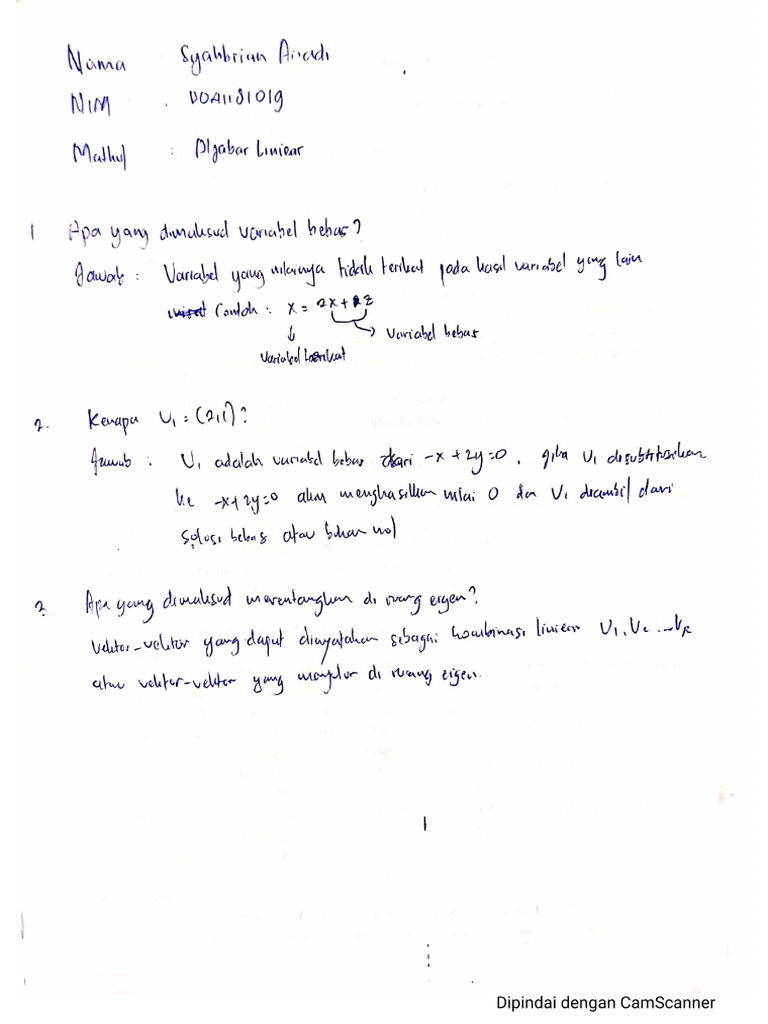 Nama : Syahbrian Ariadi
NIM : DOA1181019
Matkul : Aljabar Liniear
1 Apa yang dimaksud variabel bebas?
Jawab : Variabel yang nilainya tidak terikat pada hasil variabel yang lain
Contoh : x = 2x + 2z
variabel bebas
variabel terikat
2. Kenapa U₁ = (2,1)?
Jawab : U₁ adalah variabel bebas dari -x + 2y = 0, jika U₁ disubstitusikan
ke -x + 2y = 0 akan menghasilkan nilai 0 dan U₁ diambil dari
solusi bebas atau bukan nol
3. Apa yang dimaksud merentangkan di ruang eigen?
Vektor-vektor yang dapat dinyatakan sebagai kombinasi liniear U₁, U₂ ... Vᵣ
atau vektor-vektor yang di ruang eigen.
Dipindai dengan CamScanner